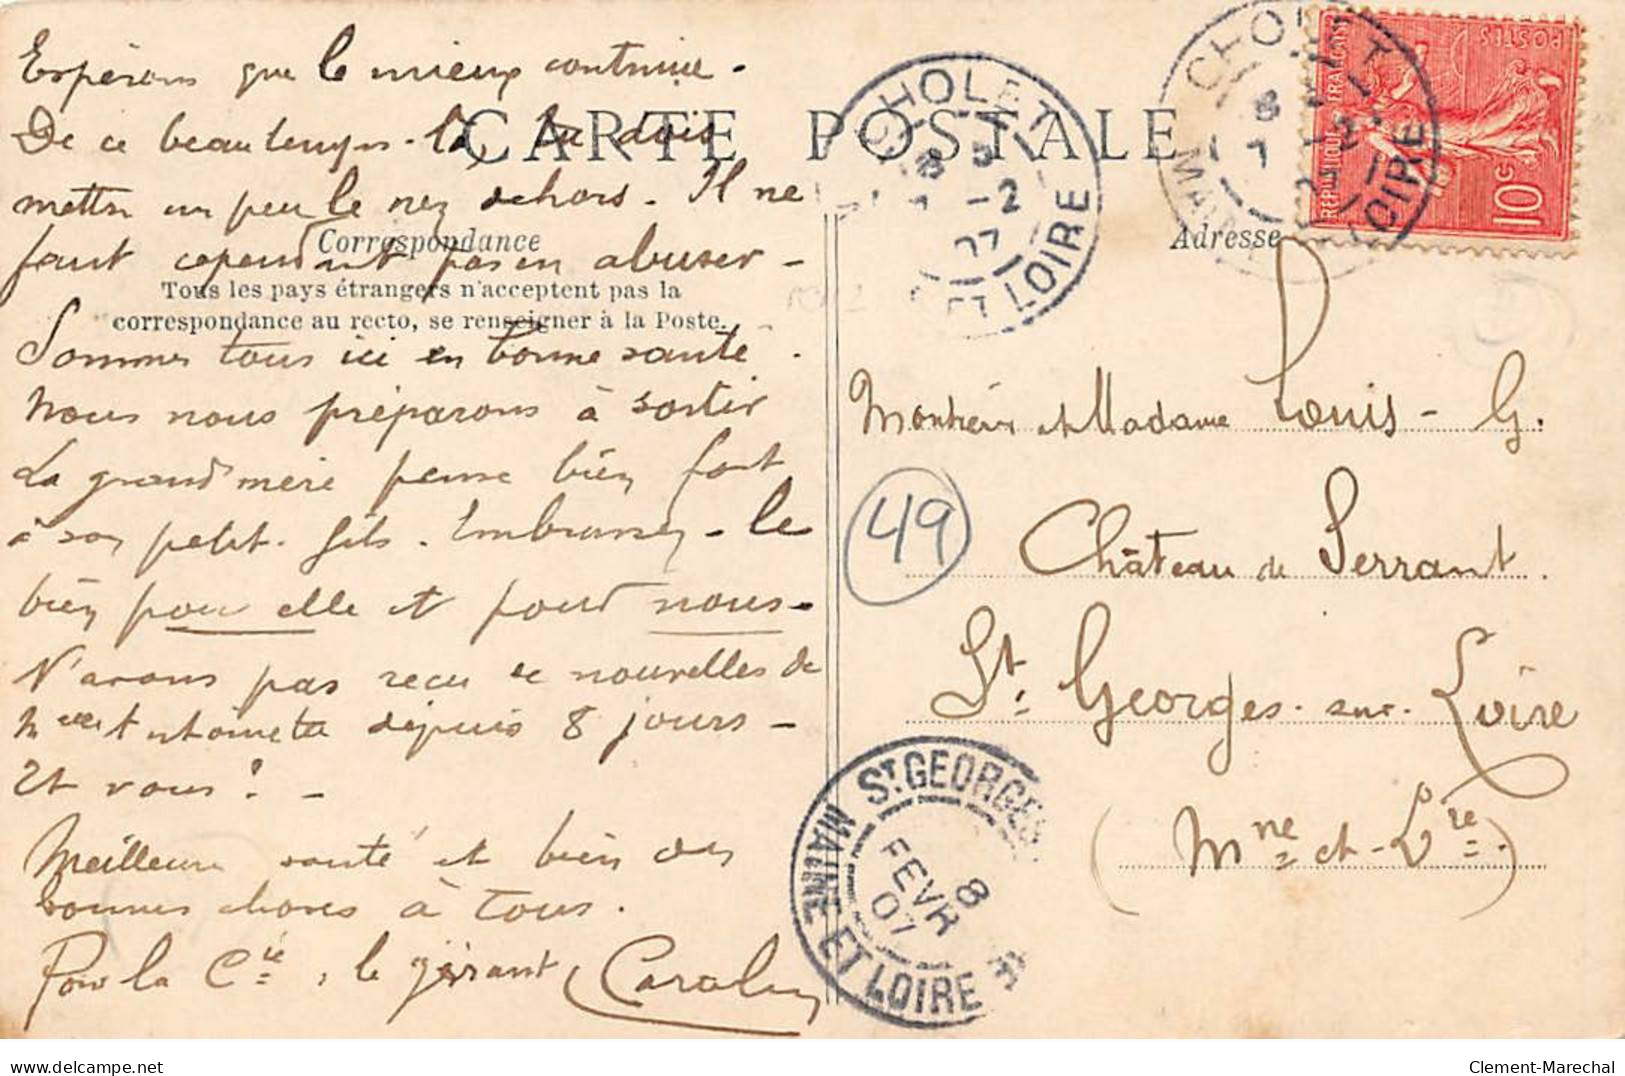 Espérons que le mieux continue -
De ce beau temps-là, tu dois
mettre un peu le nez dehors. Il ne
faut cependant pas en abuser -
Sommes tous ici en bonne santé.
Nous nous préparons à sortir
La grand'mère pense bien fort
à son petit-fils. Embrassez-le
bien pour elle et pour nous -
N'avons pas reçu de nouvelles de
depuis 8 jours -
Et vous? -
Meilleure santé et bien des
bonnes choses à tous.
Pour la Cie, le gérant
CARTE POSTALE
Correspondance
Tous les pays étrangers n'acceptent pas la
correspondance au recto, se renseigner à la Poste.
Adresse
CHOLET
8
7 -2
07
ET LOIRE
CHOLET
MAINE
LOIRE
POSTES
REPUBLIQUE FRANÇAISE
10 C
Monsieur et Madame Louis - G.
Château de Serrant.
St. Georges-sur-Loire
(Mne et-Lre.)
49
ST. GEORGES
8
FEVR
07
MAINE ET LOIRE
Clement-Marechal
delcampe.net